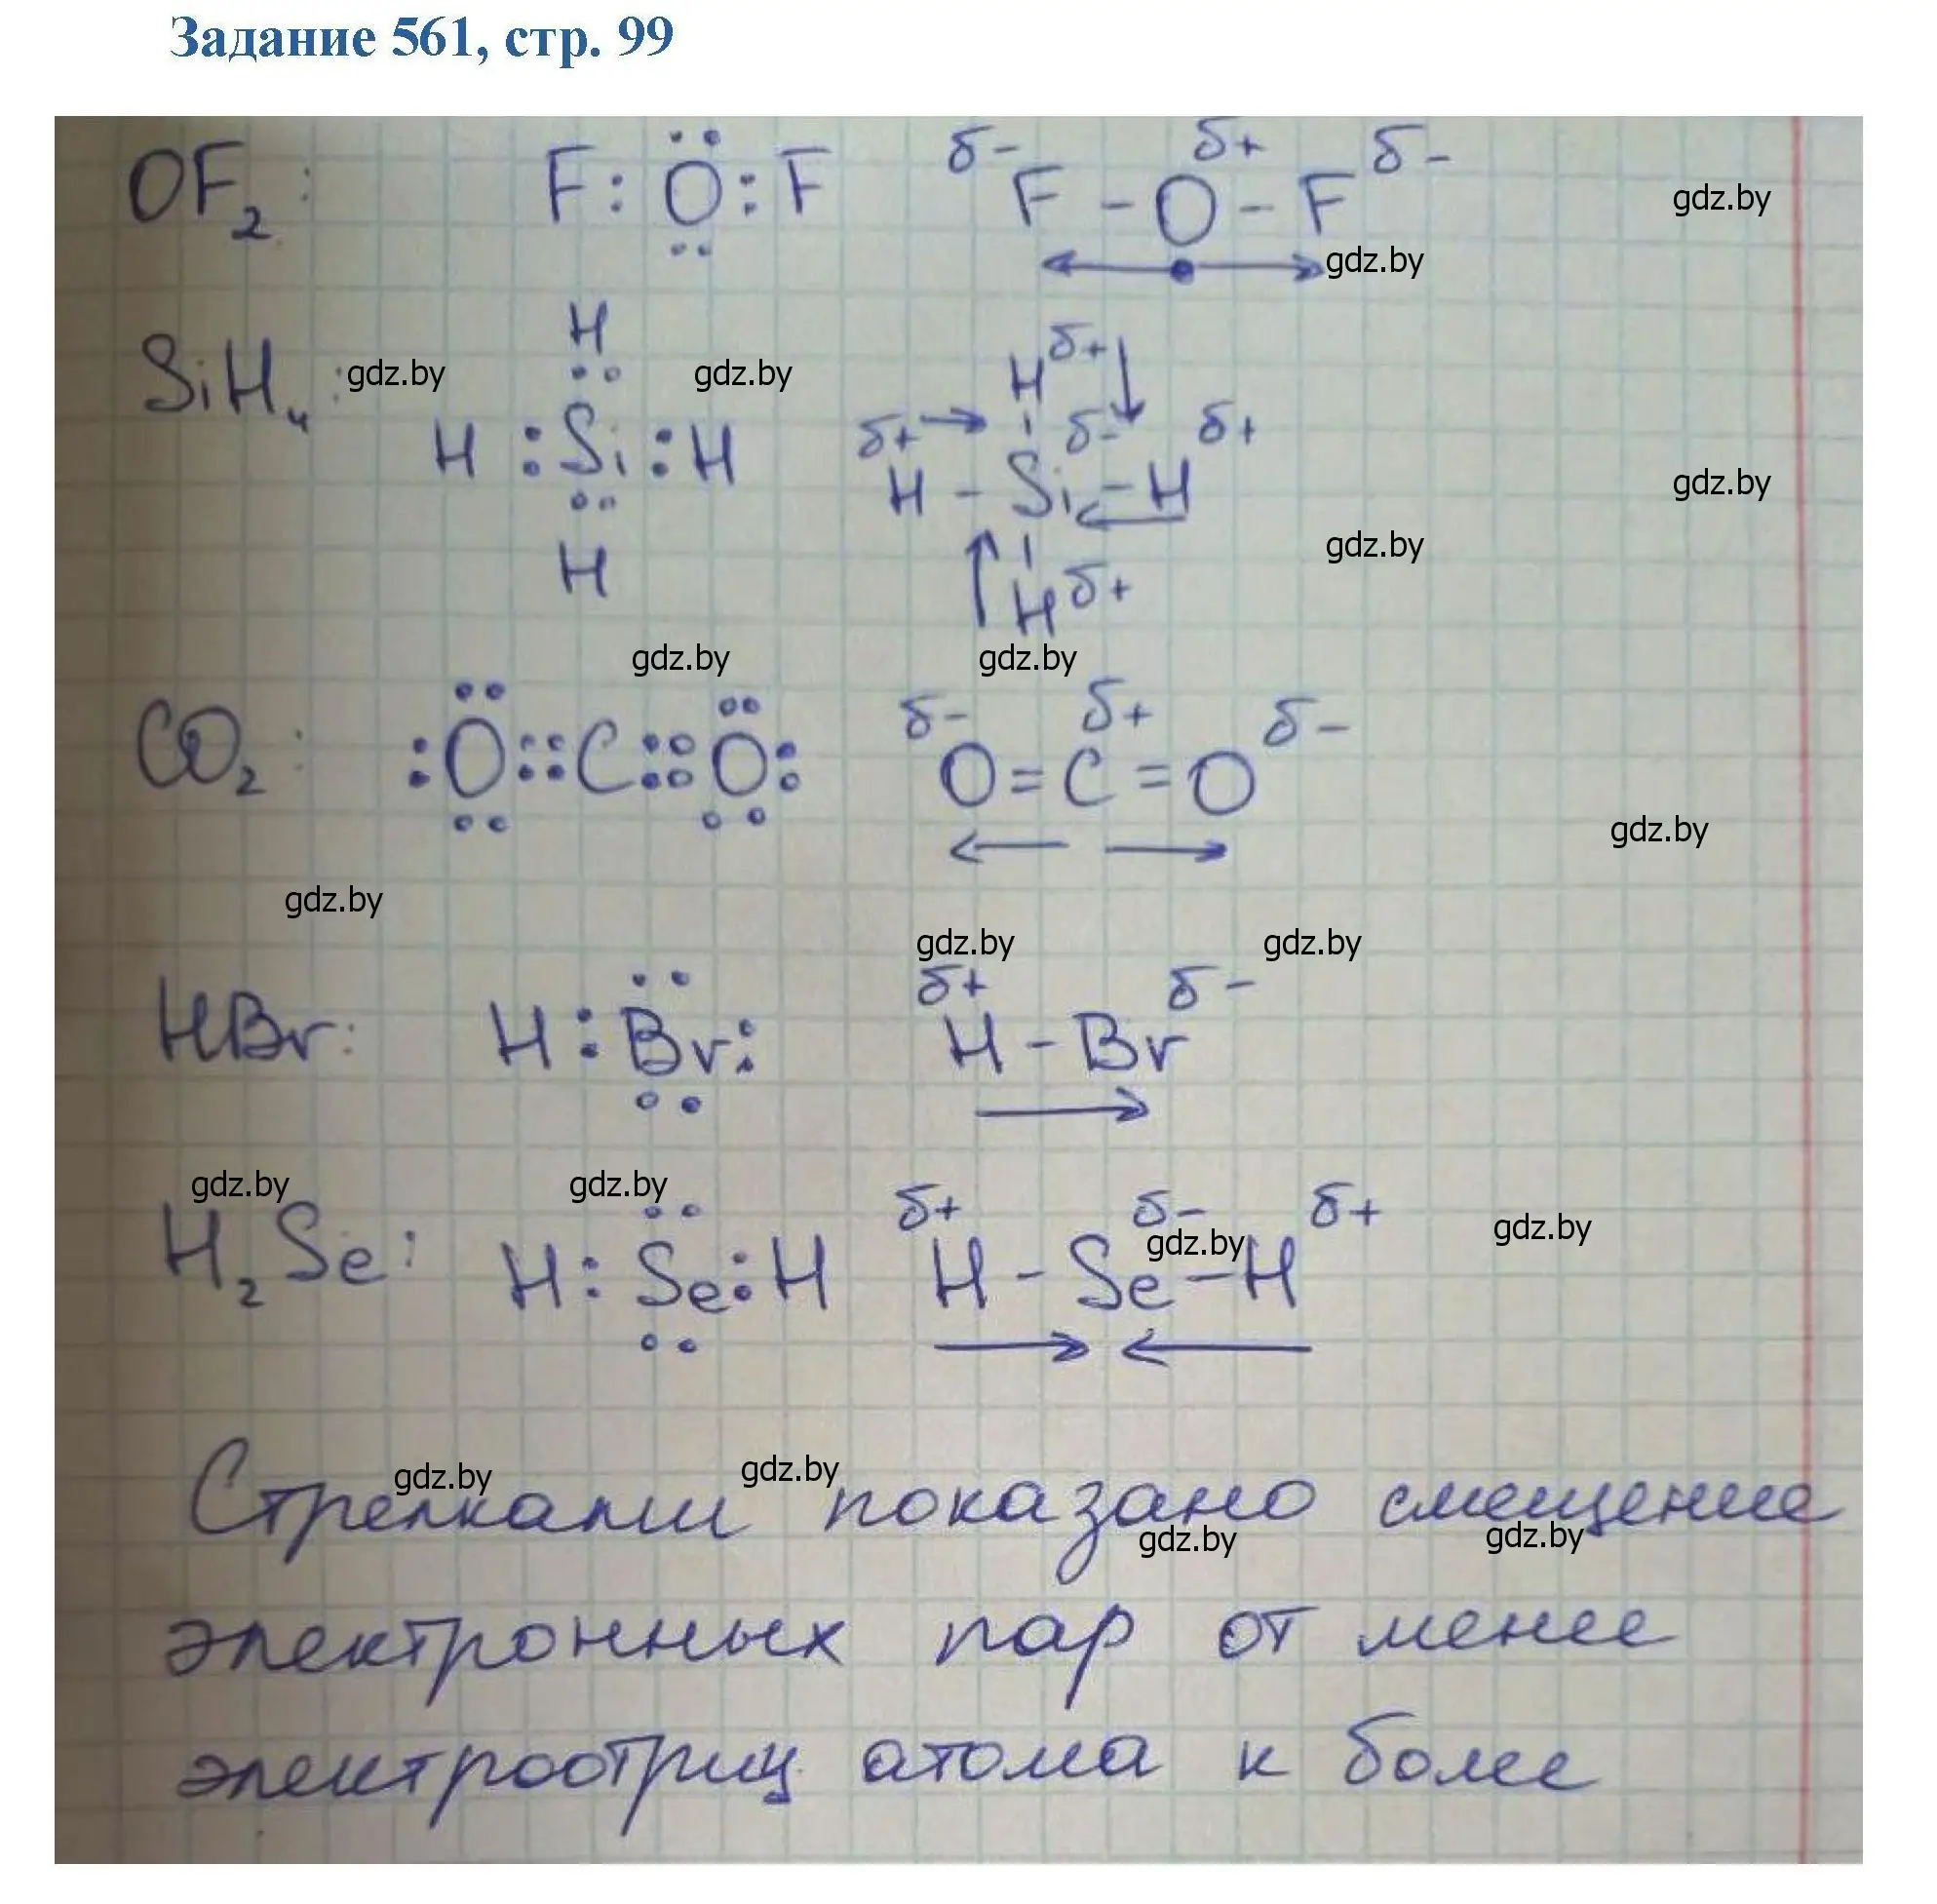 Задание 561, стр. 99
δ- δ+ δ-
OF₂: F:O:F F-O-F gdz.by
gdz.by
H δ+
SiH₄: gdz.by gdz.by H
δ+ δ- δ+
H:Si:H H-Si-H gdz.by
gdz.by
H H δ+
gdz.by gdz.by
δ- δ+ δ-
CO₂: :O::C::O: O=C=O
gdz.by
gdz.by
gdz.by gdz.by
δ+ δ-
HBr: H:Br: H-Br
gdz.by gdz.by
δ+ δ- δ+
gdz.by gdz.by
H₂Se: H:Se:H H-Se-H
gdz.by gdz.by
Стрелками показано смещение
gdz.by gdz.by
электронных пар от менее
электроотриц. атома к более